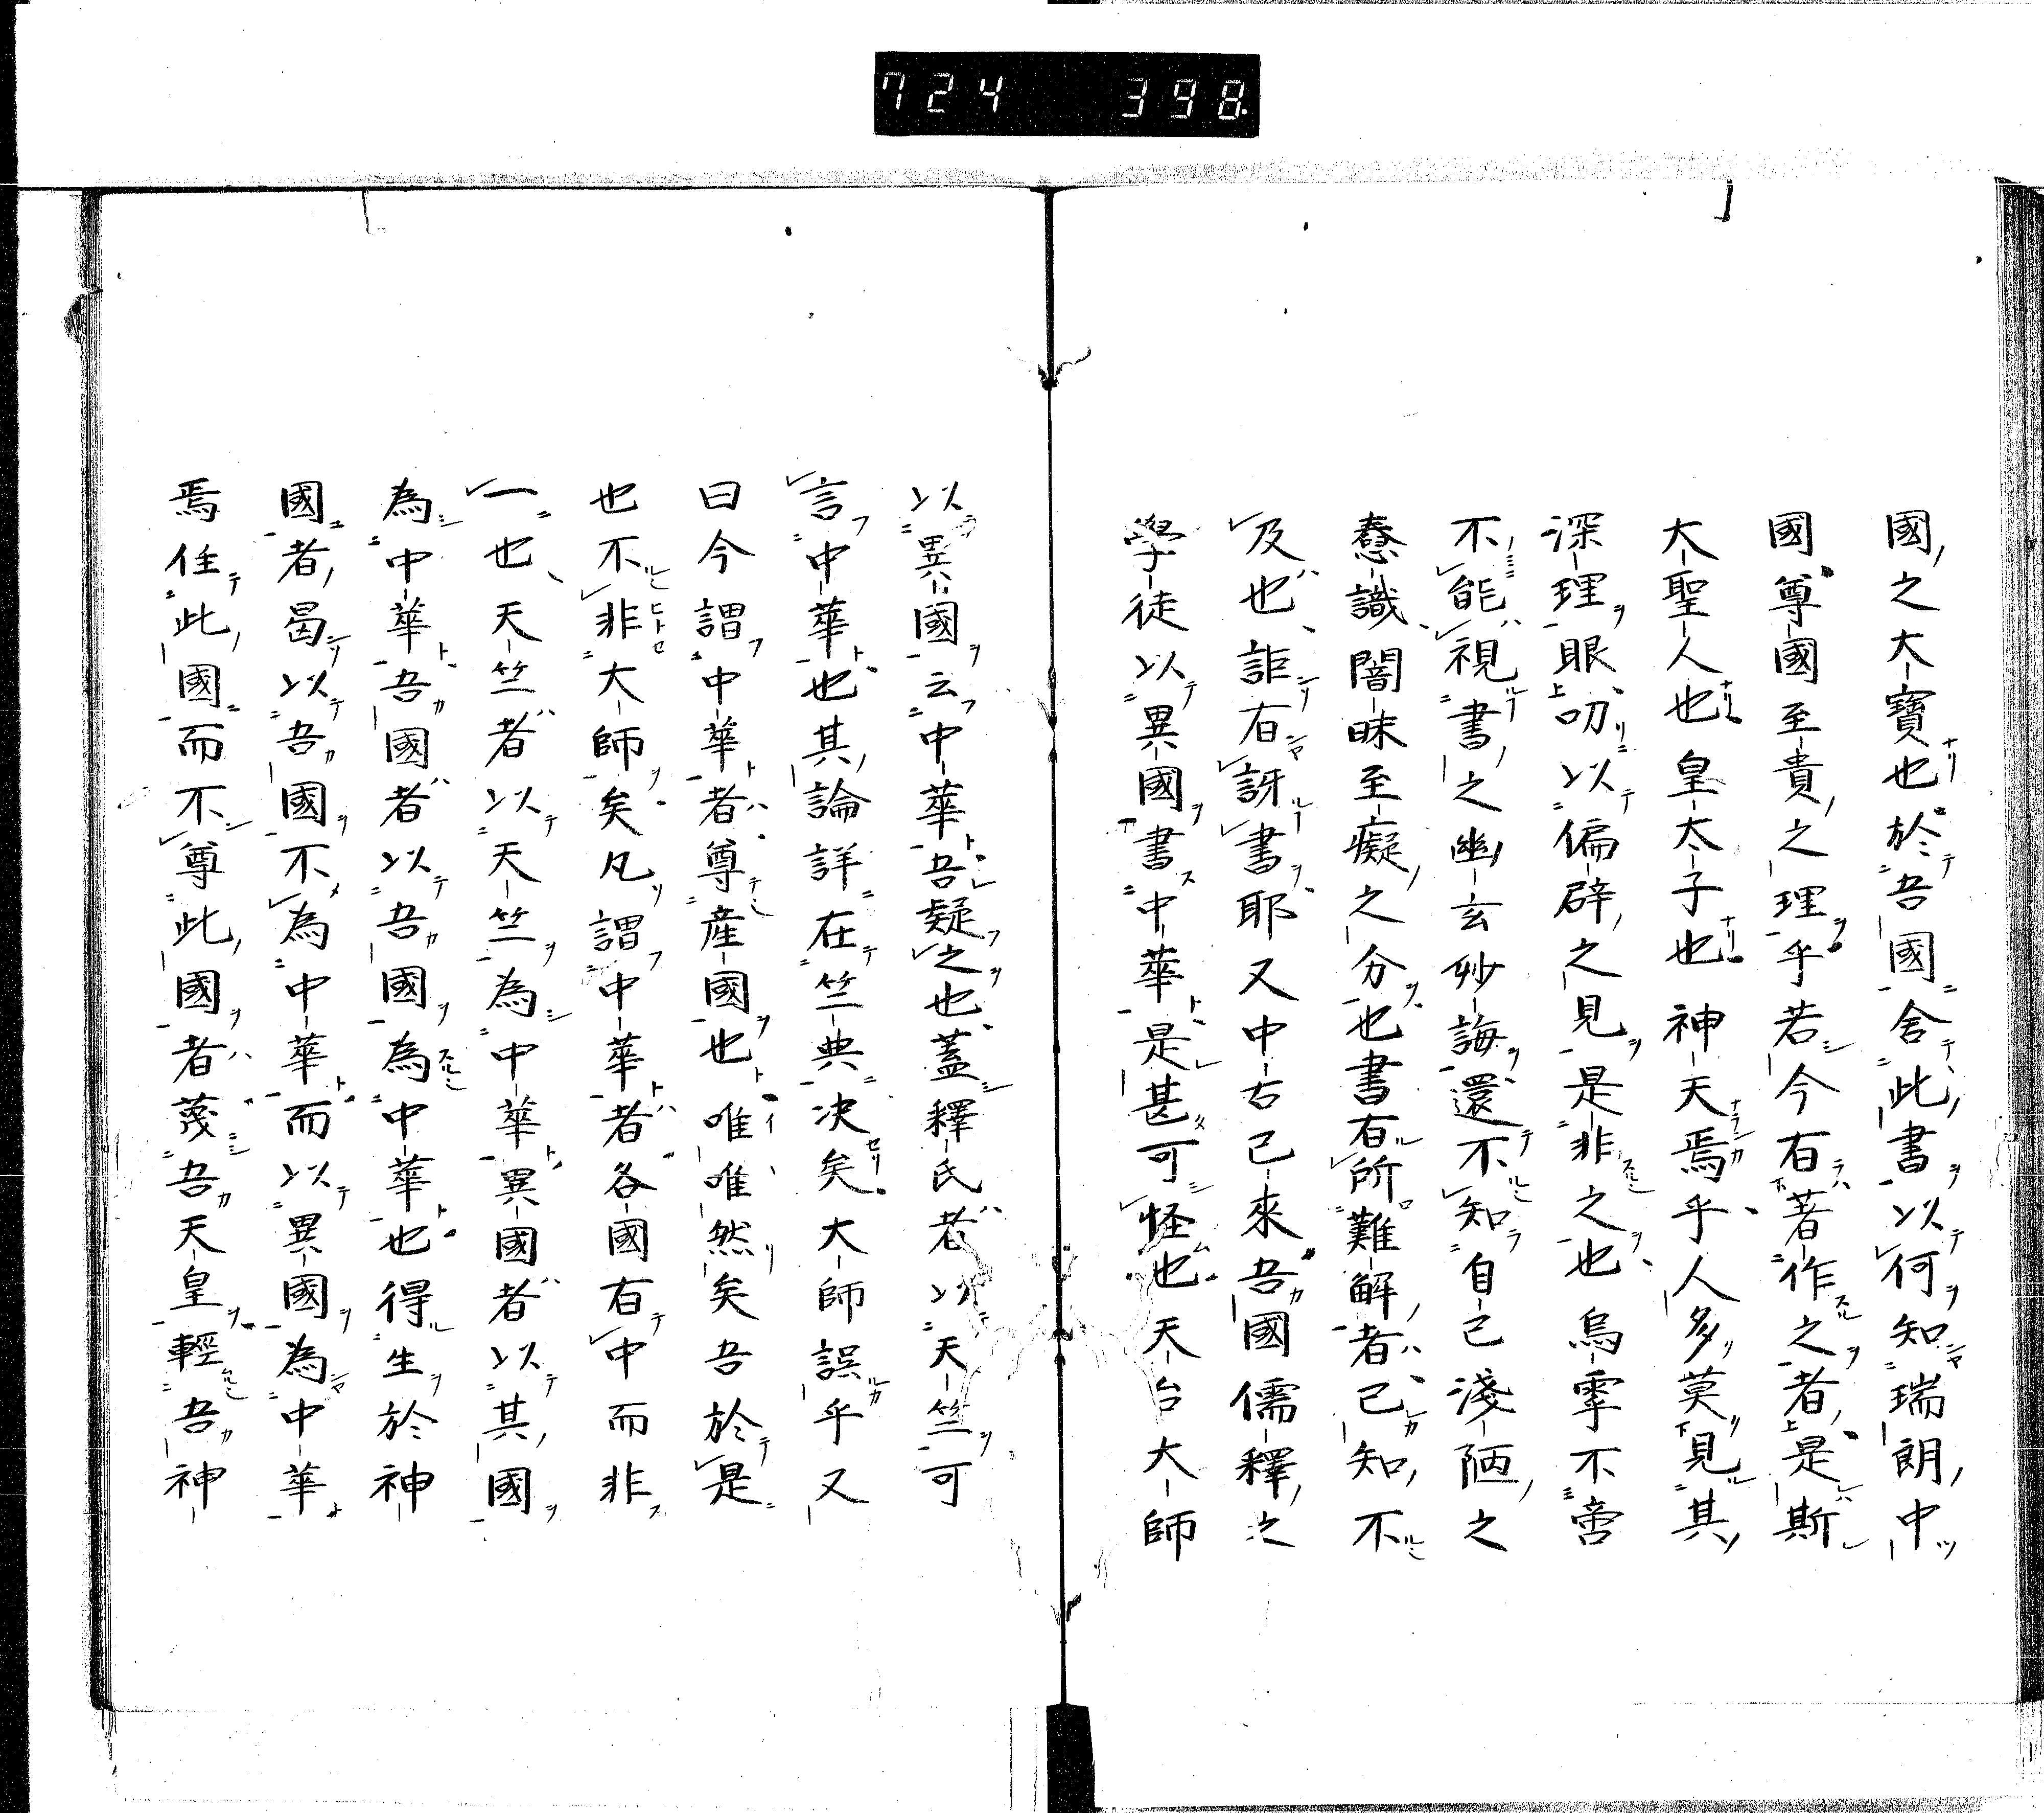 724 398.
國之大寶也於吾國舍此書以何知瑞朗中
國尊國至貴之理乎若今有著作之者是斯
大聖人也皇太子也神天焉乎人多莫見其
深理眼叨以偏辟之見是非之也烏雫不啻
不能視書之幽玄妙誨還不知自己淺陋之
惷識闇昧至癡之分也書有所難解者己知不
及也詎有訝書耶又中古已來吾國儒釋之
學徒以異國書中華是甚可怪也天台大師
以異國云中華吾疑之也蓋釋氏者以天竺可
言中華也其論詳在竺典决矣大師誤乎又
曰今謂中華者尊産國也唯唯然矣吾於是
也不非大師矣凡謂中華者各國有中而非
一也天竺者以天竺為中華異國者以其國
為中華吾國者以吾國為中華也得生於神
國者曷以吾國不為中華而以異國為中華
焉住此國而不尊此國者蔑吾天皇輕吾神